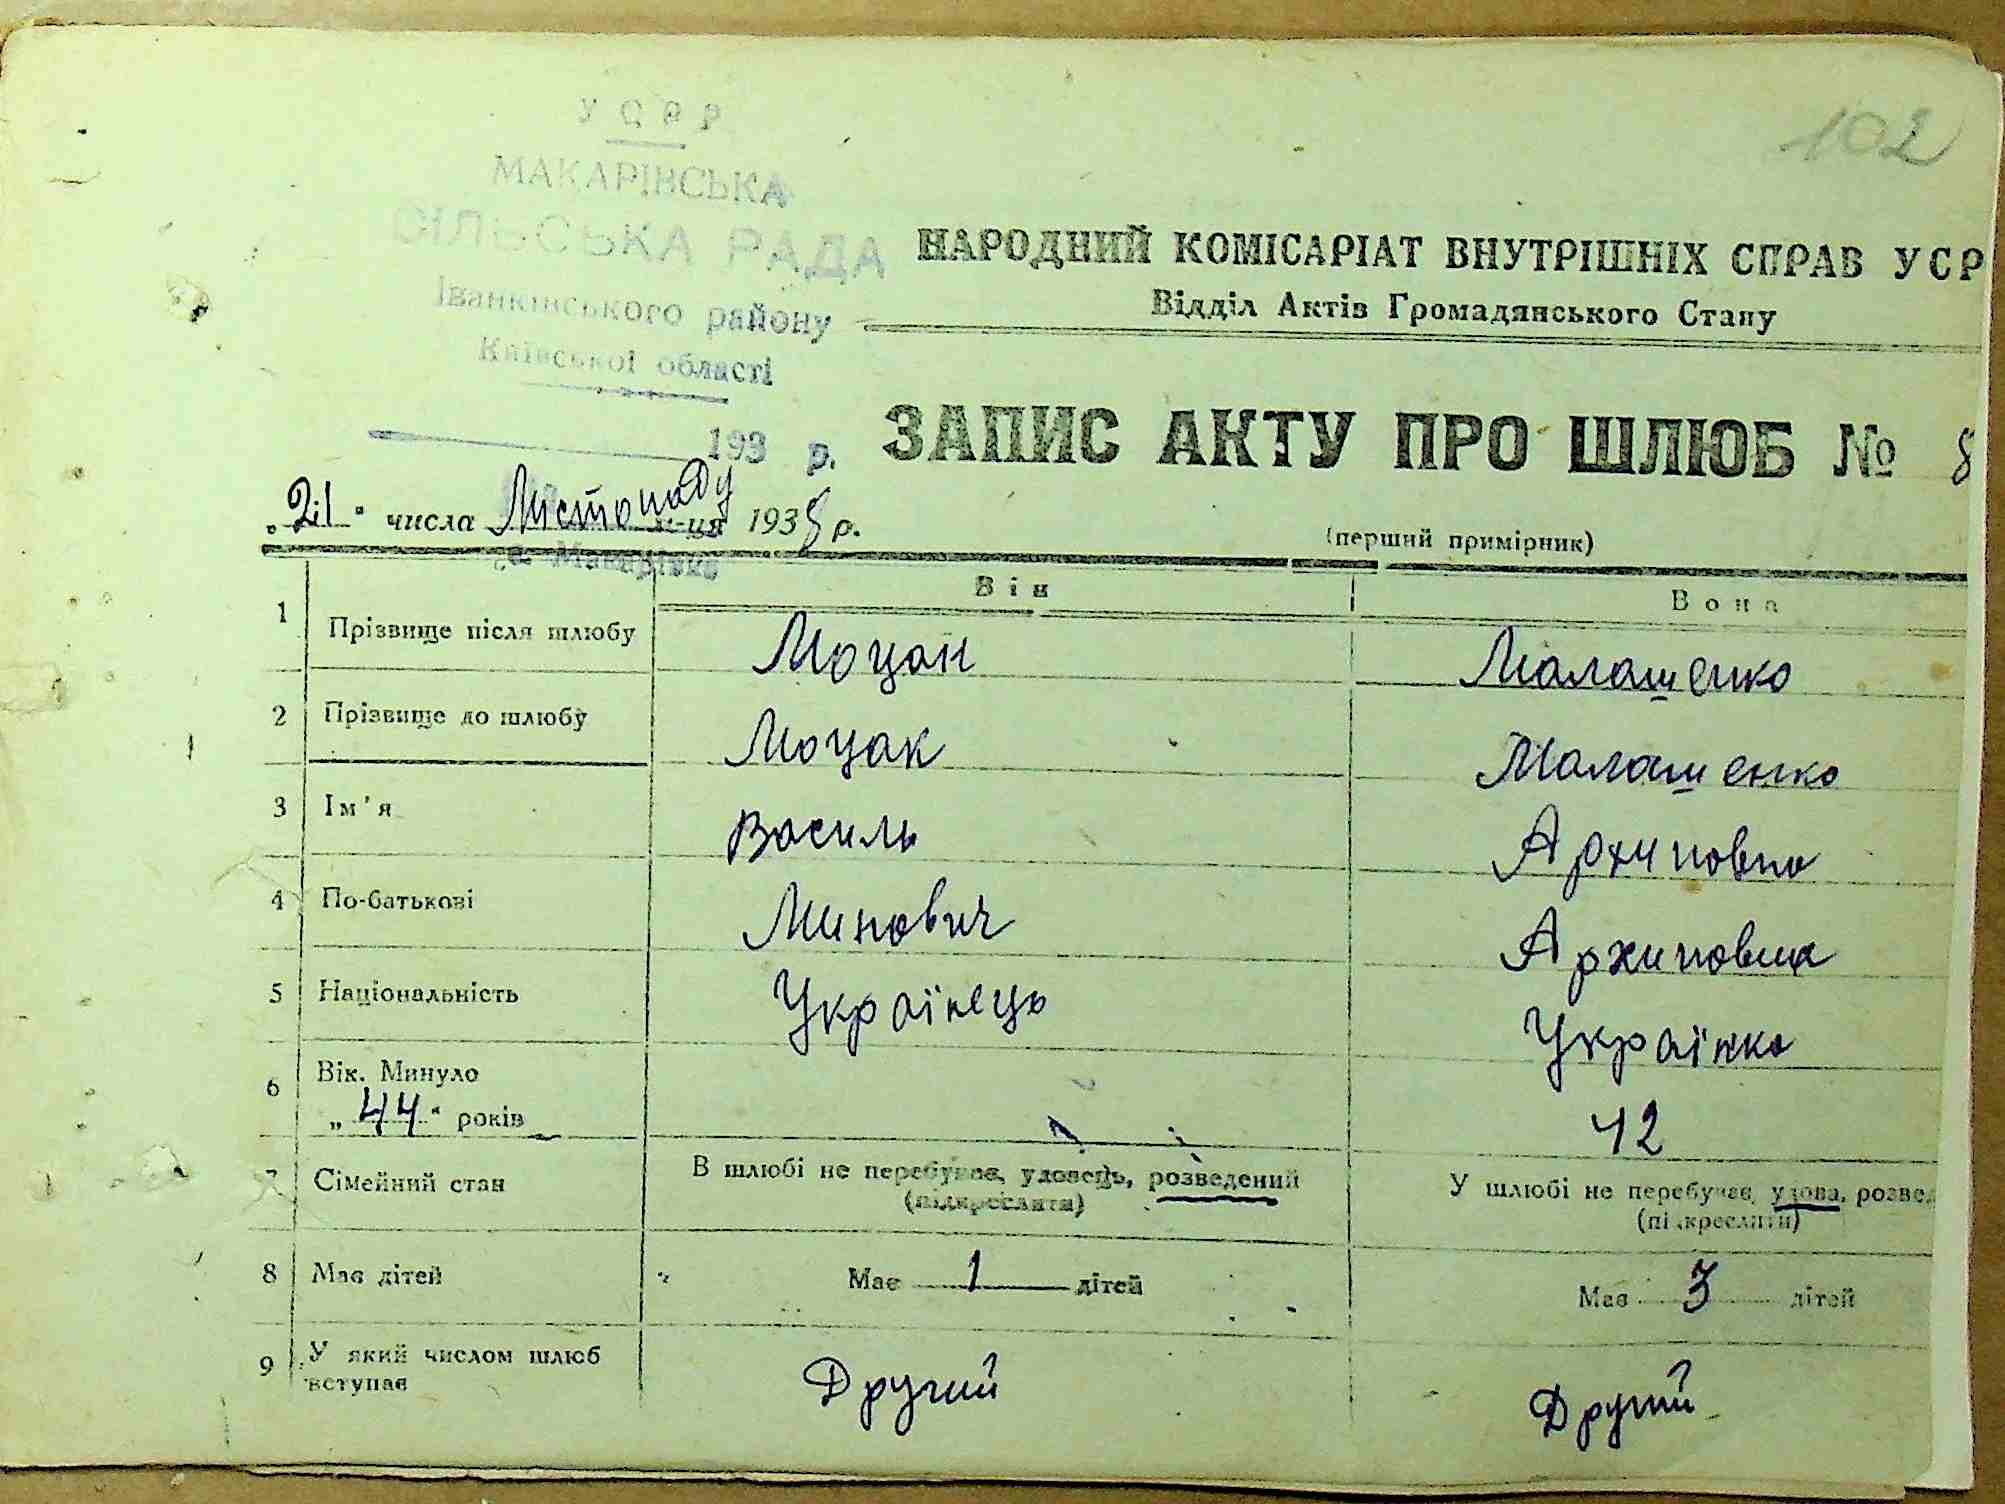 102
УСРР
МАКАРІВСЬКА
СІЛЬСЬКА РАДА
Іванківського району
Київської області
193 р.
НАРОДНИЙ КОМІСАРІАТ ВНУТРІШНІХ СПРАВ УСР
Відділ Актів Громадянського Стану
ЗАПИС АКТУ ПРО ШЛЮБ № 8
„21“ числа Листопаду м-ця 1935 р.
(перший примірник)
с. Макарівка
Він Вона
1 Прізвище після шлюбу Моцан Малашенко
2 Прізвище до шлюбу Моцак Малашенко
3 Ім'я Василь Архиповна
4 По-батькові Минович Архиповна
5 Національність Українець Українка
6 Вік. Минуло
„44“ років 42
7 Сімейний стан В шлюбі не перебуває, удовець, розведений У шлюбі не перебуває, удова, розвед
(підкреслити) (підкреслити)
8 Має дітей Має 1 дітей Має 3 дітей
9 У який числом шлюб
вступає Другий Другий